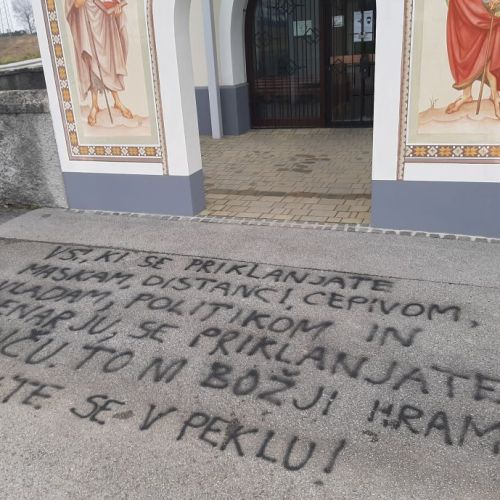 VSI, KI SE PRIKLANJATE
MASKAM, DISTANCI, CEPIVOM,
VLADAM, POLITIKOM IN
ENARJU, SE PRIKLANJATE
IČU. TO NI BOŽJI HRAM
TE SE V PEKLU!